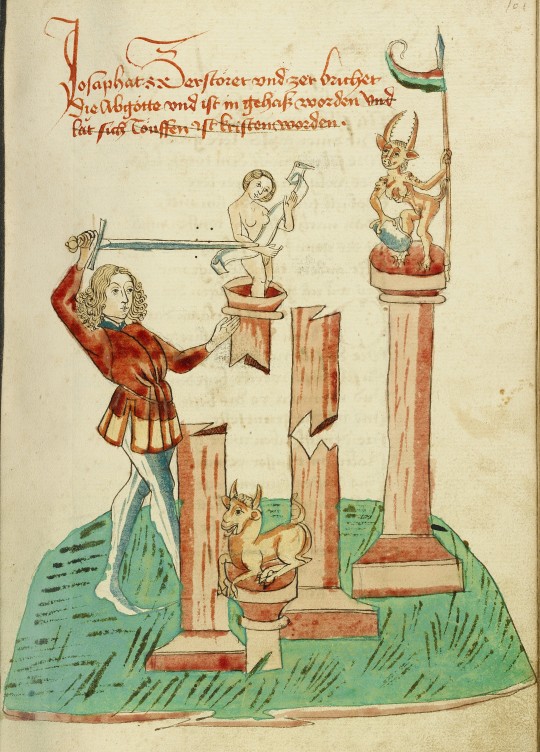 Josaphat Zerstoret vnd zer brichet
die Abgötte vnd ist in gehaß worden vnd
hat sich Touffen Ist kristen worden.